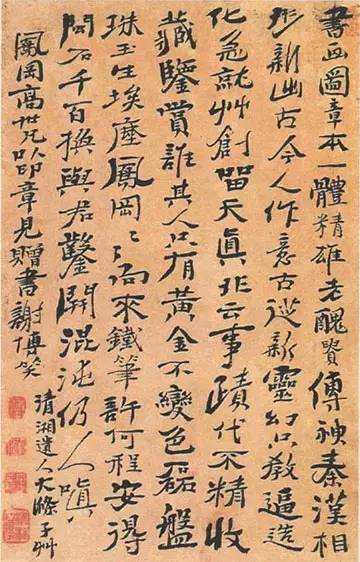 書画圖章本一體精雄老醜貴傳神秦漢相
形新出古今人作意古從新靈幻只教逼造
化急就艸創留天真非云事蹟代不精收
藏鑒賞誰其人只有黃金不變色磊盤
珠玉生埃塵鳳岡〻向來鐵筆許何程安得
閒石千百換與君鑿開混沌仍人嗔
鳳岡高世兄以印章見贈書謝博笑
清湘遺人大滌子艸